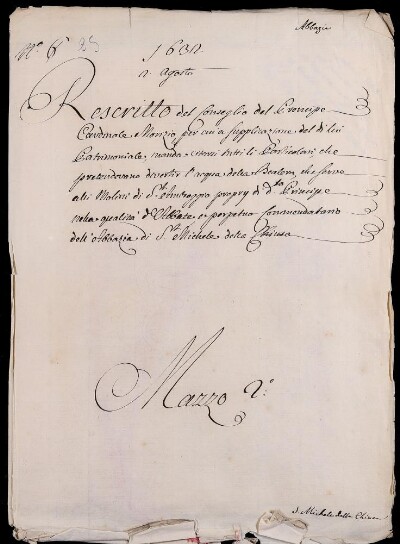 Abbazia
N.° 6° 85
1632
2. Agosto
Rescritto del Conseglio del Prencipe
Cardinale Morizio per cui a supplicazione del di lui
Patrimoniale, manda citarsi tutti li Particolari, che
pretendevano divertir l'acqua della Bealera, che serve
alli Molini di S.t Ambroggio proprj di d.to Prencipe
nella qualità d'Abbate e perpetuo Commendatario
dell'Abbazia di S.t Michele della Chiusa
Mazzo 2.°
S. Michele della Chiusa